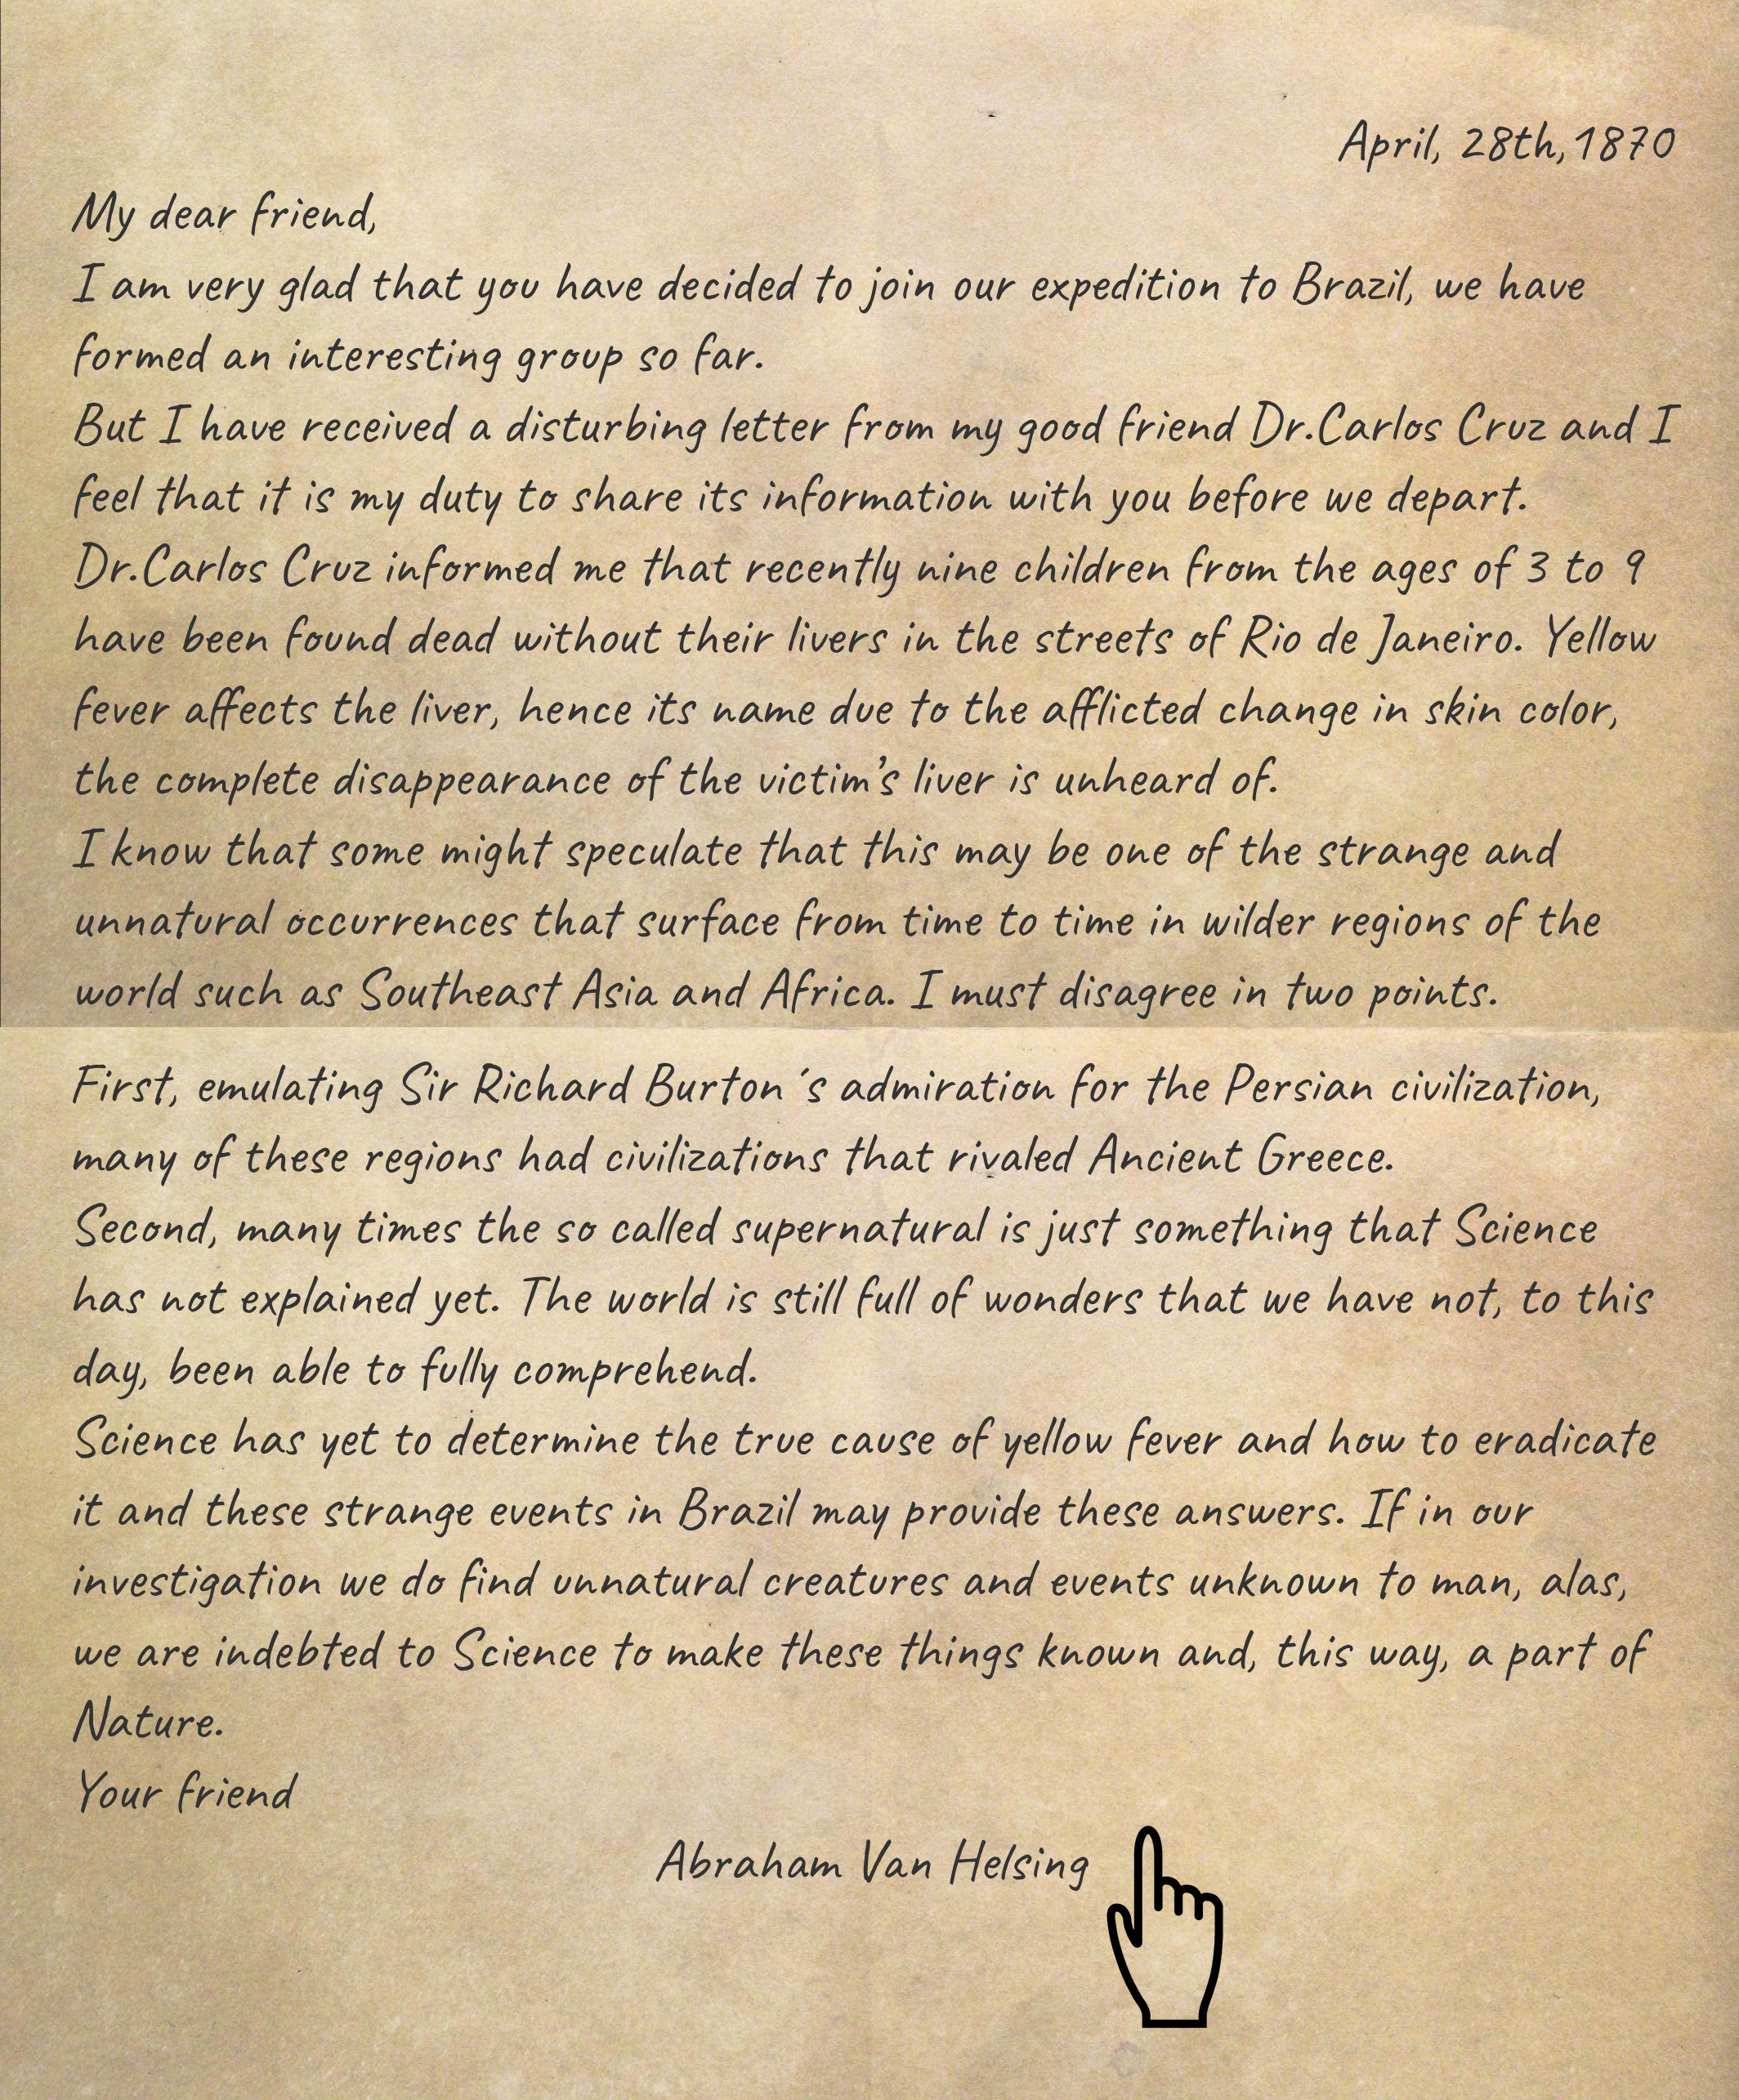 April, 28th, 1870
My dear friend,
I am very glad that you have decided to join our expedition to Brazil, we have
formed an interesting group so far.
But I have received a disturbing letter from my good friend Dr.Carlos Cruz and I
feel that it is my duty to share its information with you before we depart.
Dr.Carlos Cruz informed me that recently nine children from the ages of 3 to 9
have been found dead without their livers in the streets of Rio de Janeiro. Yellow
fever affects the liver, hence its name due to the afflicted change in skin color,
the complete disappearance of the victim's liver is unheard of.
I know that some might speculate that this may be one of the strange and
unnatural occurrences that surface from time to time in wilder regions of the
world such as Southeast Asia and Africa. I must disagree in two points.
First, emulating Sir Richard Burton´s admiration for the Persian civilization,
many of these regions had civilizations that rivaled Ancient Greece.
Second, many times the so called supernatural is just something that Science
has not explained yet. The world is still full of wonders that we have not, to this
day, been able to fully comprehend.
Science has yet to determine the true cause of yellow fever and how to eradicate
it and these strange events in Brazil may provide these answers. If in our
investigation we do find unnatural creatures and events unknown to man, alas,
we are indebted to Science to make these things known and, this way, a part of
Nature.
Your friend
Abraham Van Helsing